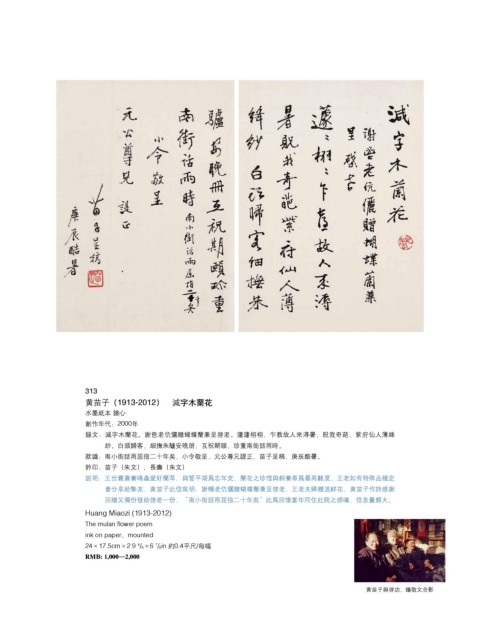 減字木蘭花
謝鬯老伉儷贈蝴蝶蘭兼
呈啓老
蘧蘧栩栩乍喜故人來溽
暑貺我奇葩紫府仙人薄
絳紗 白頭歸客細撫朱
驢安晚冊互祝期頤珍重
南街話雨時 南小街話雨屈指二十年矣
小令敬呈
元公尊兄 諟正
苗子呈稿
庚辰酷暑
313
黃苗子（1913-2012） 減字木蘭花
水墨紙本 鏡心
創作年代：2000年
錄文：減字木蘭花。謝鬯老伉儷贈蝴蝶蘭兼呈啓老。蘧蘧栩栩，乍教故人來溽暑，貺我奇葩，紫府仙人薄絳
紗。白頭歸客，細撫朱驢安晚冊，互祝期頤，珍重南街話雨時。
款識：南小街話雨屈指二十年矣，小令敬呈，元公尊兄諟正，苗子呈稿，庚辰酷暑。
鈐印：苗子（朱文）、長壽（朱文）
說明：王世襄喜養鳴蟲愛好蘭草，與管平湖爲忘年交，蘭花之珍惜與飼養奉爲最高雅度，王老如有特殊品種定
會分享給摯友，黃苗子此信寫明，謝暢老伉儷贈蝴蝶蘭兼呈啓老，王老夫婦贈送鮮花，黃苗子作詩感謝
回贈又備份發給啓老一份，“南小街話雨屈指二十年矣”此爲回憶當年同住此院之感嘆，信息量頗大。
Huang Miaozi (1913-2012)
The mulan flower poem
ink on paper，mounted
24×17.5cm×2 9 ⁴/₈×6 ⁷/₈in 約0.4平尺/每幅
RMB: 1,000—2,000
黃苗子與啓功、鍾敬文合影